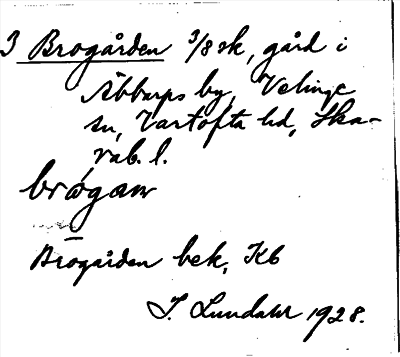 3 Brogården 3/8 sk, gård i
Äbbarps by, Velinge
sn, Vartofta hd, Ska-
rab. l.
brógaɯ
Brogården bek, Kb
I. Lundahl 1928.